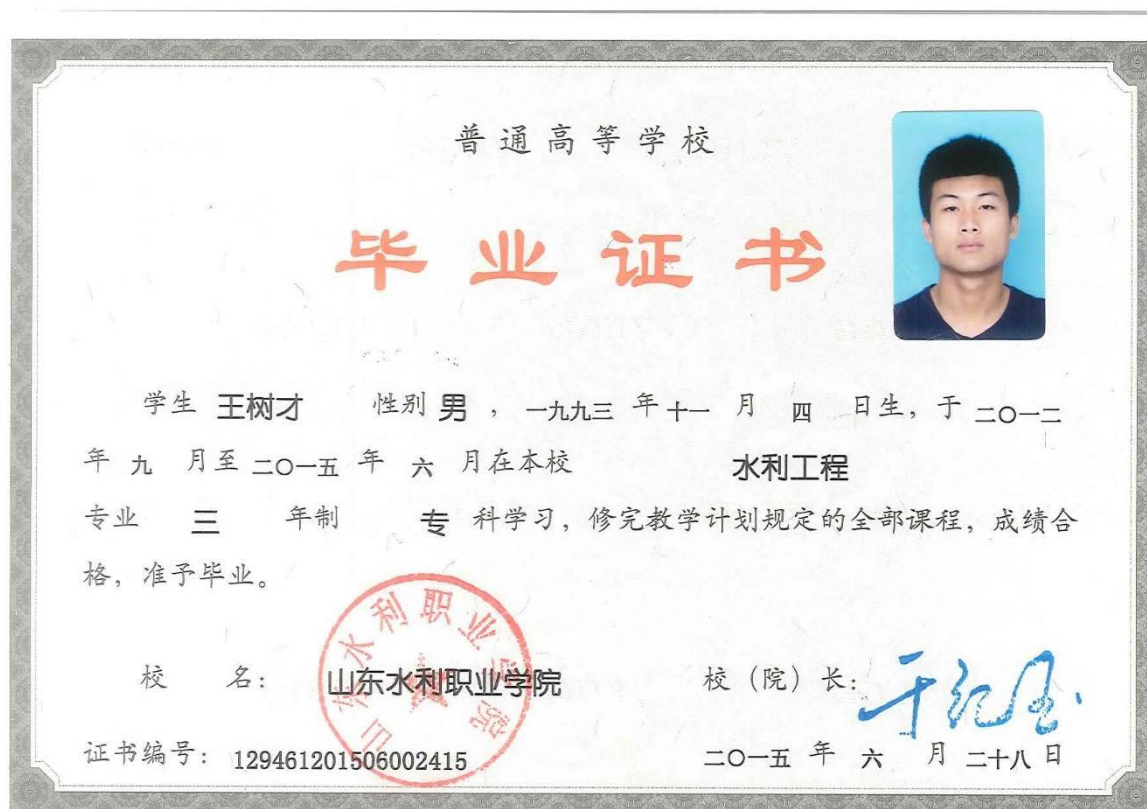 普通高等学校
毕业证书
学生 王树才 性别 男 ，一九九三 年 十一 月 四 日生，于 二〇一二
年 九 月至 二〇一五 年 六 月在本校 水利工程
专业 三 年制 专 科学习，修完教学计划规定的全部课程，成绩合
格，准予毕业。
山东水利职业学院
校 名： 山东水利职业学院 校（院）长：
证书编号：129461201506002415 二〇一五 年 六 月 二十八 日